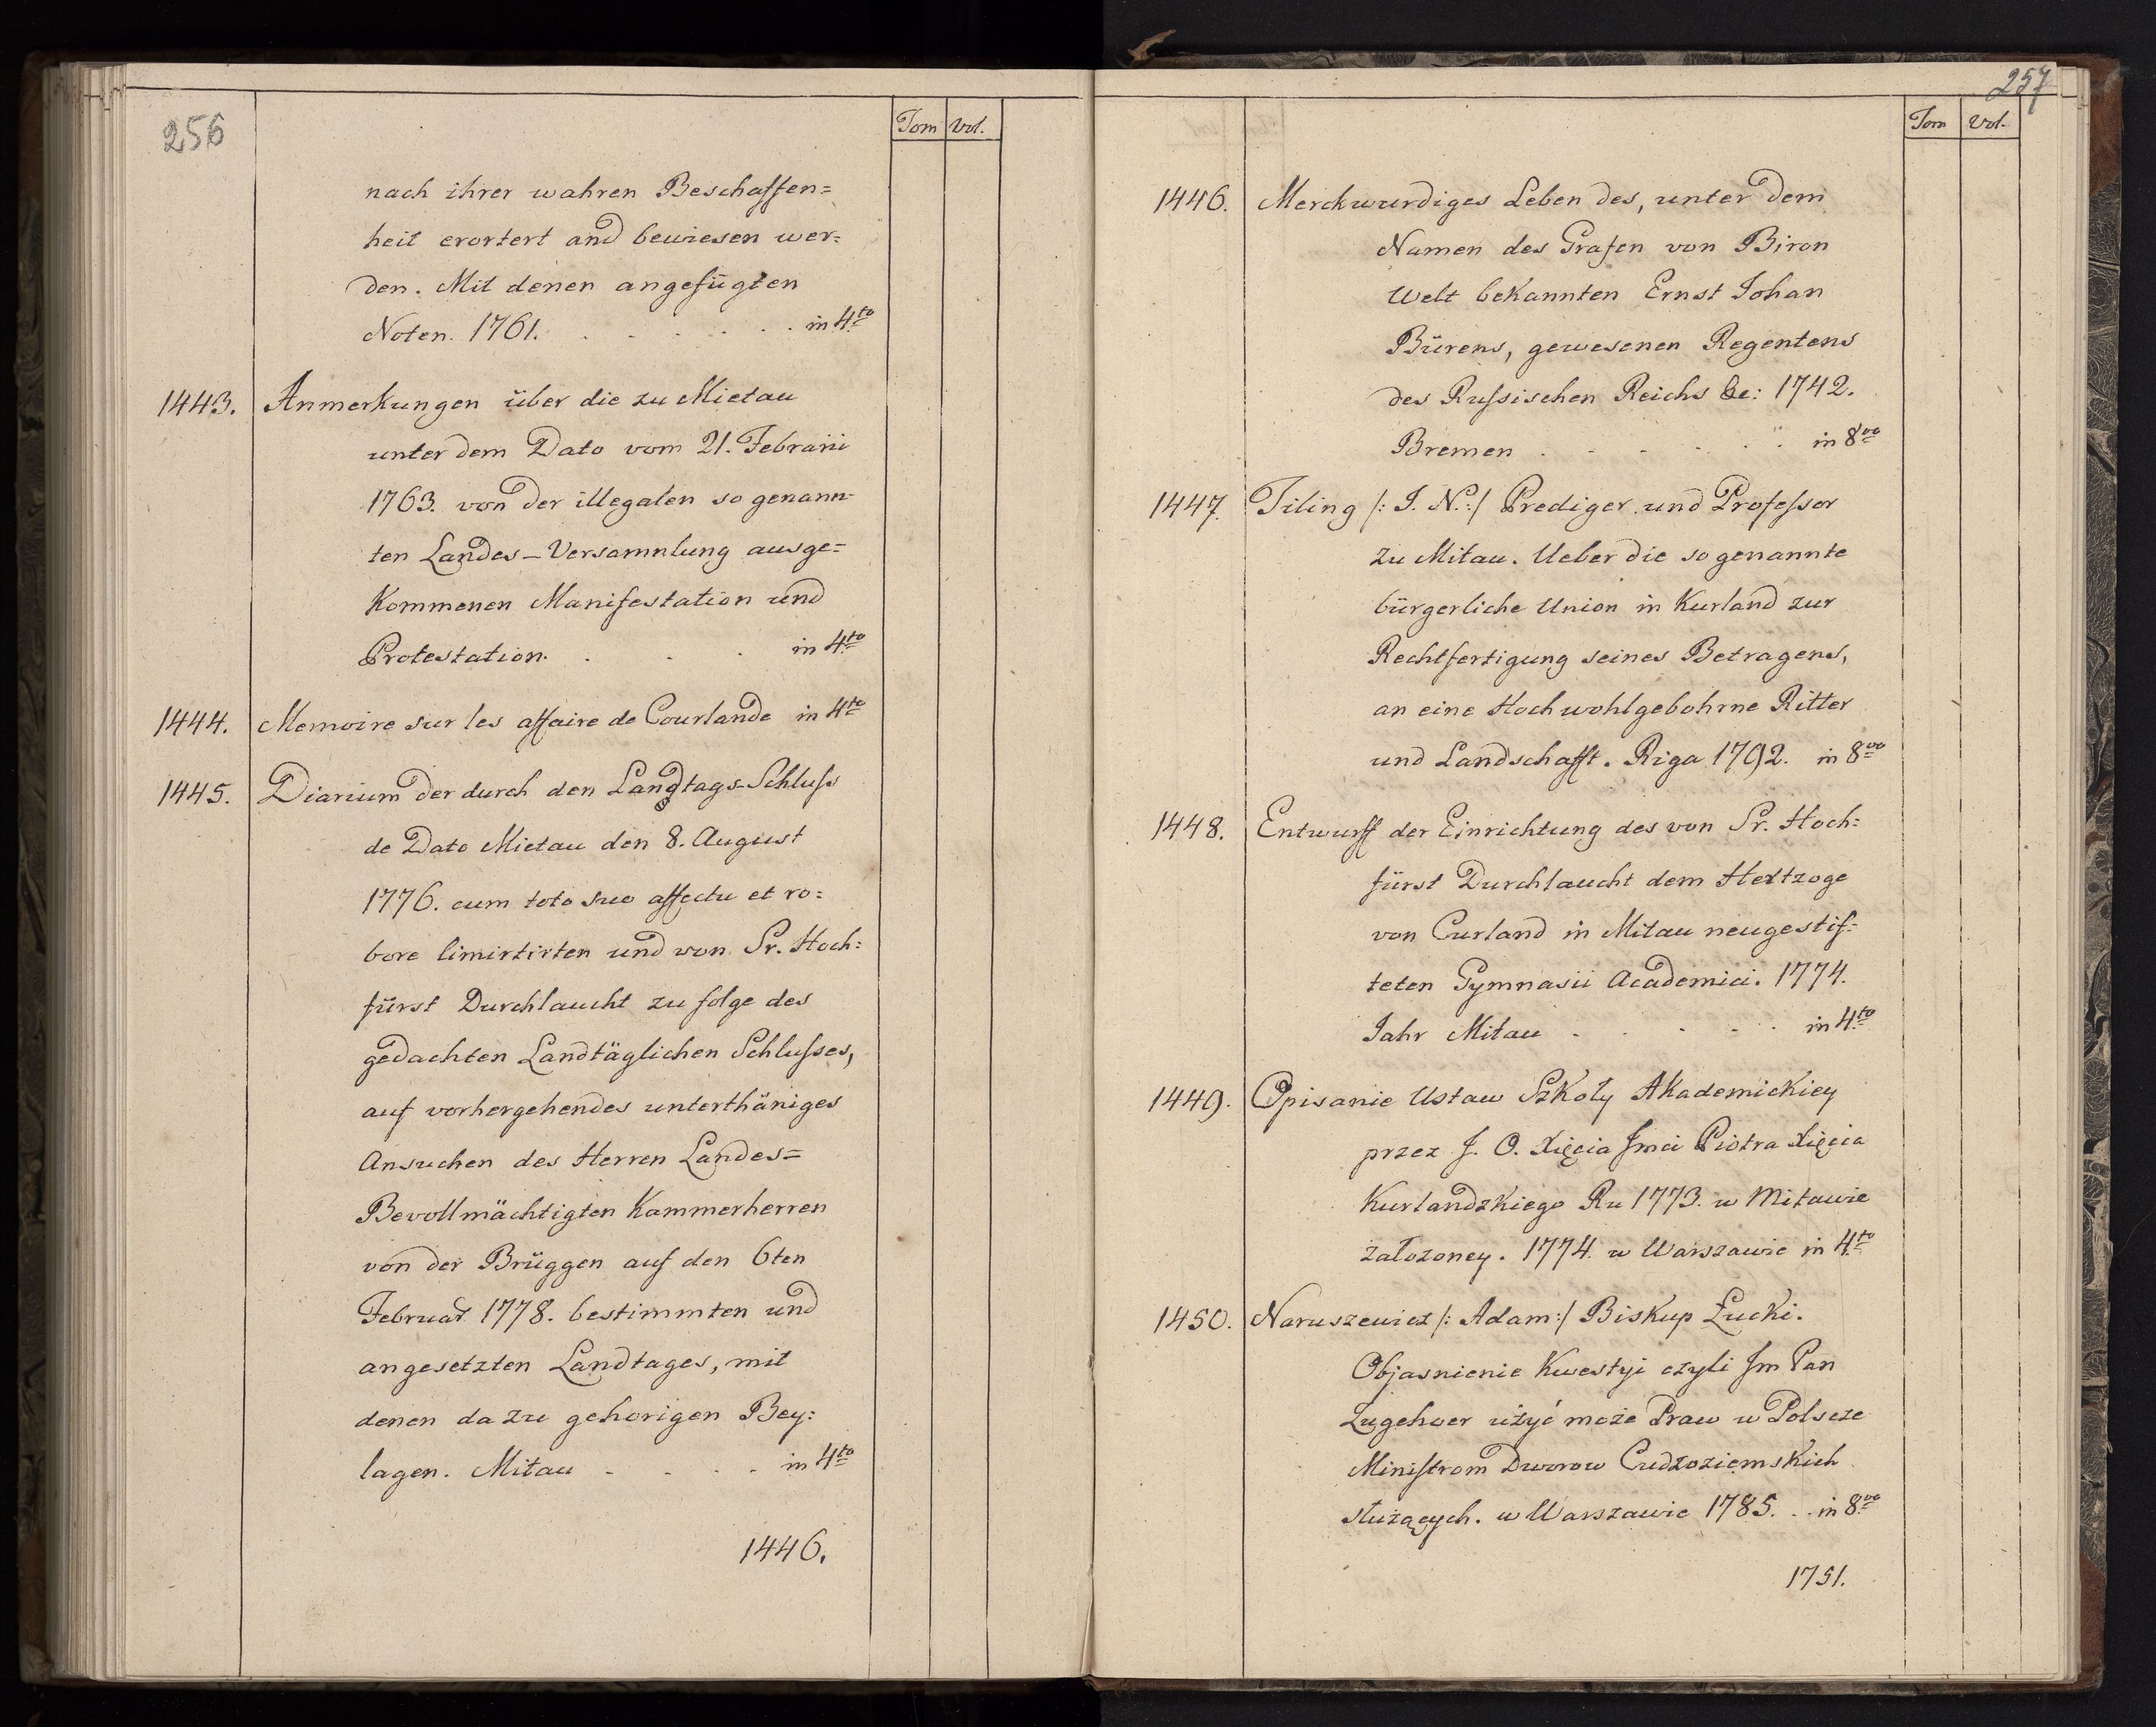 256
Tom Vol.
nach ihrer wahren Beschaffen=
heit erortert and bewiesen wer=
den. Mit denen angefügten
Noten. 1761. . . . . . . in 4to
1443. Anmerkungen über die zu Mietau
unter dem Dato vom 21. Febrarii
1763. von der illegalen so genann=
ten Landes-Versammlung ausge=
kommenen Manifestation und
Protestation. . . . in 4to
1444. Memoire sur les affaire de Courlande in 4to
1445. Diarium der durch den Landtags-Schluss
de Dato Mietau den 8. August
1776. cum toto suo affectu et ro=
bore limirtirten und von Sr. Hoch=
fürst Durchlaucht zu folge des
gedachten Landtäglichen Schlusses,
auf vorhergehendes unterthäniges
Ansuchen des Herren Landes=
Bevollmächtigten Kammerherren
von der Brüggen auf den 6ten
Februar 1778. bestimmten und
angesetzten Landtages, mit
denen da zu gehorigen Bey=
lagen. Mitau . . . . in 4to
1446.
257
Tom Vol.
1446. Merckwurdiges Leben des, unter dem
Namen des Grafen von Biron
Welt bekannten Ernst Johan
Bürens, gewesenen Regentens
des Russischen Reichs &c: 1742.
Bremen . . . . . in 8vo
1447. Tiling /: I. N.:/ Prediger und Professor
zu Mitau. Ueber die so genannte
bürgerliche Union in Kurland zur
Rechtfertigung seines Betragens,
an eine Hochwohlgebohrne Ritter
und Landschafft. Riga 1792. in 8vo
1448. Entwurff der Einrichtung des von Sr. Hoch=
fürst Durchlaucht dem Hertzoge
von Curland in Mitau neugestif=
teten Gymnasii Academici. 1774.
Jahr Mitau . . . . . in 4to
1449. Opisanie Ustaw Szkoły Akademickiey
przez J. O. Xięcia Jmci Piotra Xięcia
Kurlandzkiego Ru 1773. w Mitawie
założoney. 1774. w Warszawie in 4to
1450. Naruszewicz /: Adam:/ Biskup Łucki.
Objasnienie Kwestyi czyli Jm Pan
Zugehoer użyć może Praw w Polscze
Ministrom Dworow Cudzoziemskich
służących. w Warszawie 1785. . . in 8vo
1751.